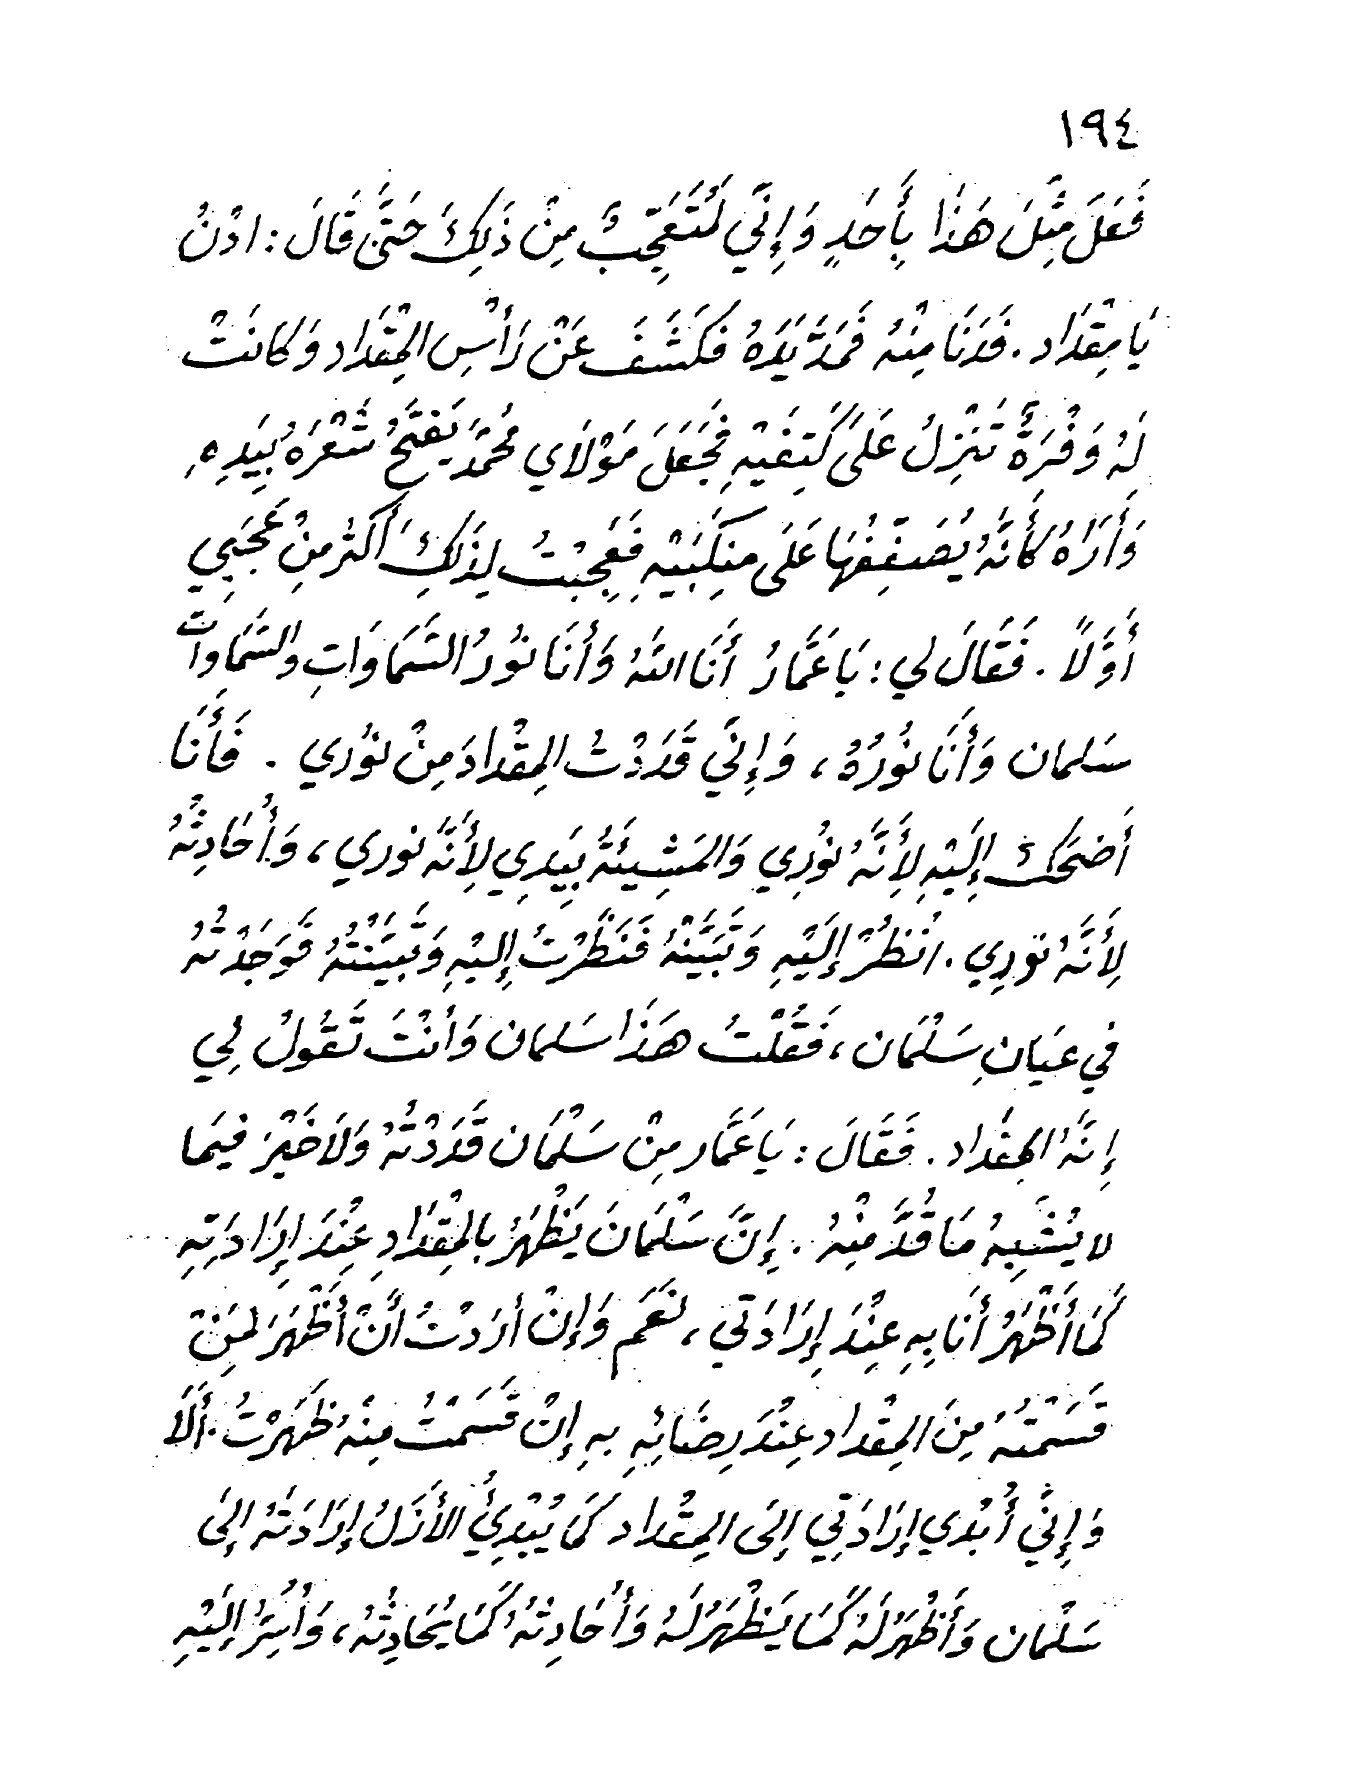 ١٩٤
فَعَلَ مِثْلَ هَذَا بِأَحَدٍ وَإِنِّي لَمُتَعَجِّبٌ مِنْ ذَلِكَ حَتَّى قَالَ : ادْنُ
يَا مِقْدَاد . فَدَنَا مِنْهُ فَمَدَّ يَدَهُ فَكَشَفَ عَنْ رَأْسِ المِقْدَاد وَكَانَتْ
لَهُ وَفْرَةٌ تَنْزِلُ عَلَى كَتِفَيْهِ فَجَعَلَ مَوْلَاي مُحَمَّد يَفْتَحُ شَعْرَهُ بِيَدِهِ
وَأَرَاهُ كَأَنَّهُ يُصَفِّفُهَا عَلَى مَنكِبَيْهِ فَعَجِبْتُ لِذَلِكَ أَكْثَر مِنْ عَجَبِي
أَوَّلاً . فَقَالَ لي : يَا عَمَّارُ أَنَا اللهُ وَأَنَا نُورُ السَّمَاوَاتِ والسَّمَاوَاتُ
سَلمان وَأَنَا نُورُهُ ، وَإِنِّي قَدَدْتُ المِقْدادَ مِنْ نُورِي . فَأَنَا
أَضحَكُ إِلَيْهِ لِأَنَّهُ نُورِي وَالمَشِيئَةُ بِيَدِي لِأَنَّهُ نوري ، وَأُحَادِثُهُ
لِأَنَّهُ نورِي . انْظُرْ إِلَيْهِ وَتَبَيَّنْهُ فَنَظَرْتُ إِلَيْهِ وَتَبَيَّنْتُهُ فَوَجَدْتُهُ
في عيَانِ سَلْمَان ، فَقُلْتُ هَذَا سَلمان وَأَنْتَ تَقُولُ لِي
إِنَّهُ المِقْدَاد . فَقَالَ : يَا عَمَّار مِنْ سَلْمَان قَدَدْتُهُ وَلَا خَيْرَ فيمَا
لا يُشْبِهُ مَا قُدَّ مِنْهُ . إِنَّ سَلْمَانَ يَظْهَرُ بِالمِقْدَادِ عِنْدَ إِرَادَتِهِ
كَمَا أَظْهَرُ أَنَا بِهِ عِنْدَ إِرَادَتي ، نَعَم وَإِنْ أَرَدْتُ أَنْ أَظْهَرَ لِمَنْ
قَسَمْتُهُ مِنَ المِقْداد عِنْدَ رِضَائِهِ بِهِ إِنْ قَسَمْتُ مِنْهُ ظَهَرْتُ . أَلَا
وَإِنِّي أُبْدِي إِرَادَتِي إِلَى المِقْداد كَمَا يُبْدِئُ الأَزَلُ إِرَادَتَهُ إِلَى
سَلْمَان وَأَظْهَرُ لَهُ كَمَا يَظْهَرُ لَهُ وَأُحَادِثُهُ كَمَا يُحَادِثُهُ ، وَأُسِرُّ إِلَيْهِ